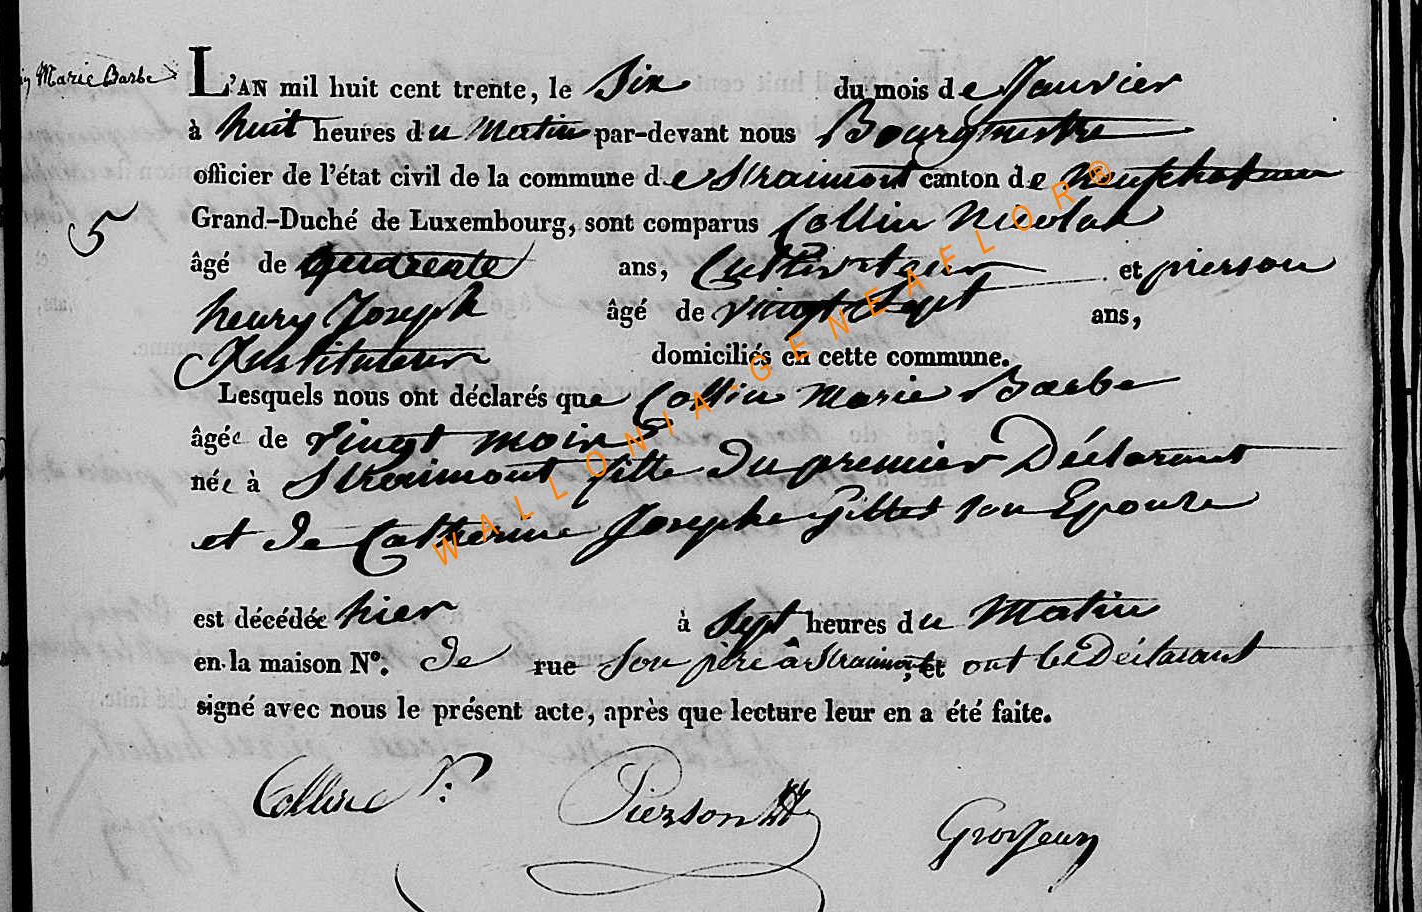 Marie Barbe
L'AN mil huit cent trente, le Six du mois de Janvier
à huit heures du Matin par-devant nous Bourgmestre
officier de l'état civil de la commune de Straimont canton de neufchateau
5 Grand-Duché de Luxembourg, sont comparus Collin Nicolas
âgé de quarente ans, Cultivateur et pierson
henry Joseph âgé de vingt Sept ans,
Instituteur domiciliés en cette commune.
Lesquels nous ont déclarés que Collin Marie Barbe
âgée de vingt mois
née à Straimont fille du premier Déclarant
et de Catherine Josephe Gillet son Epouse
est décédée hier à Sept heures du Matin
en la maison N°. de rue Son père à Straimont, et ont les Déclarant
signé avec nous le présent acte, après que lecture leur en a été faite.
Collin N. Pierson Grosjean
WALLONIA-GENEAFLOR®